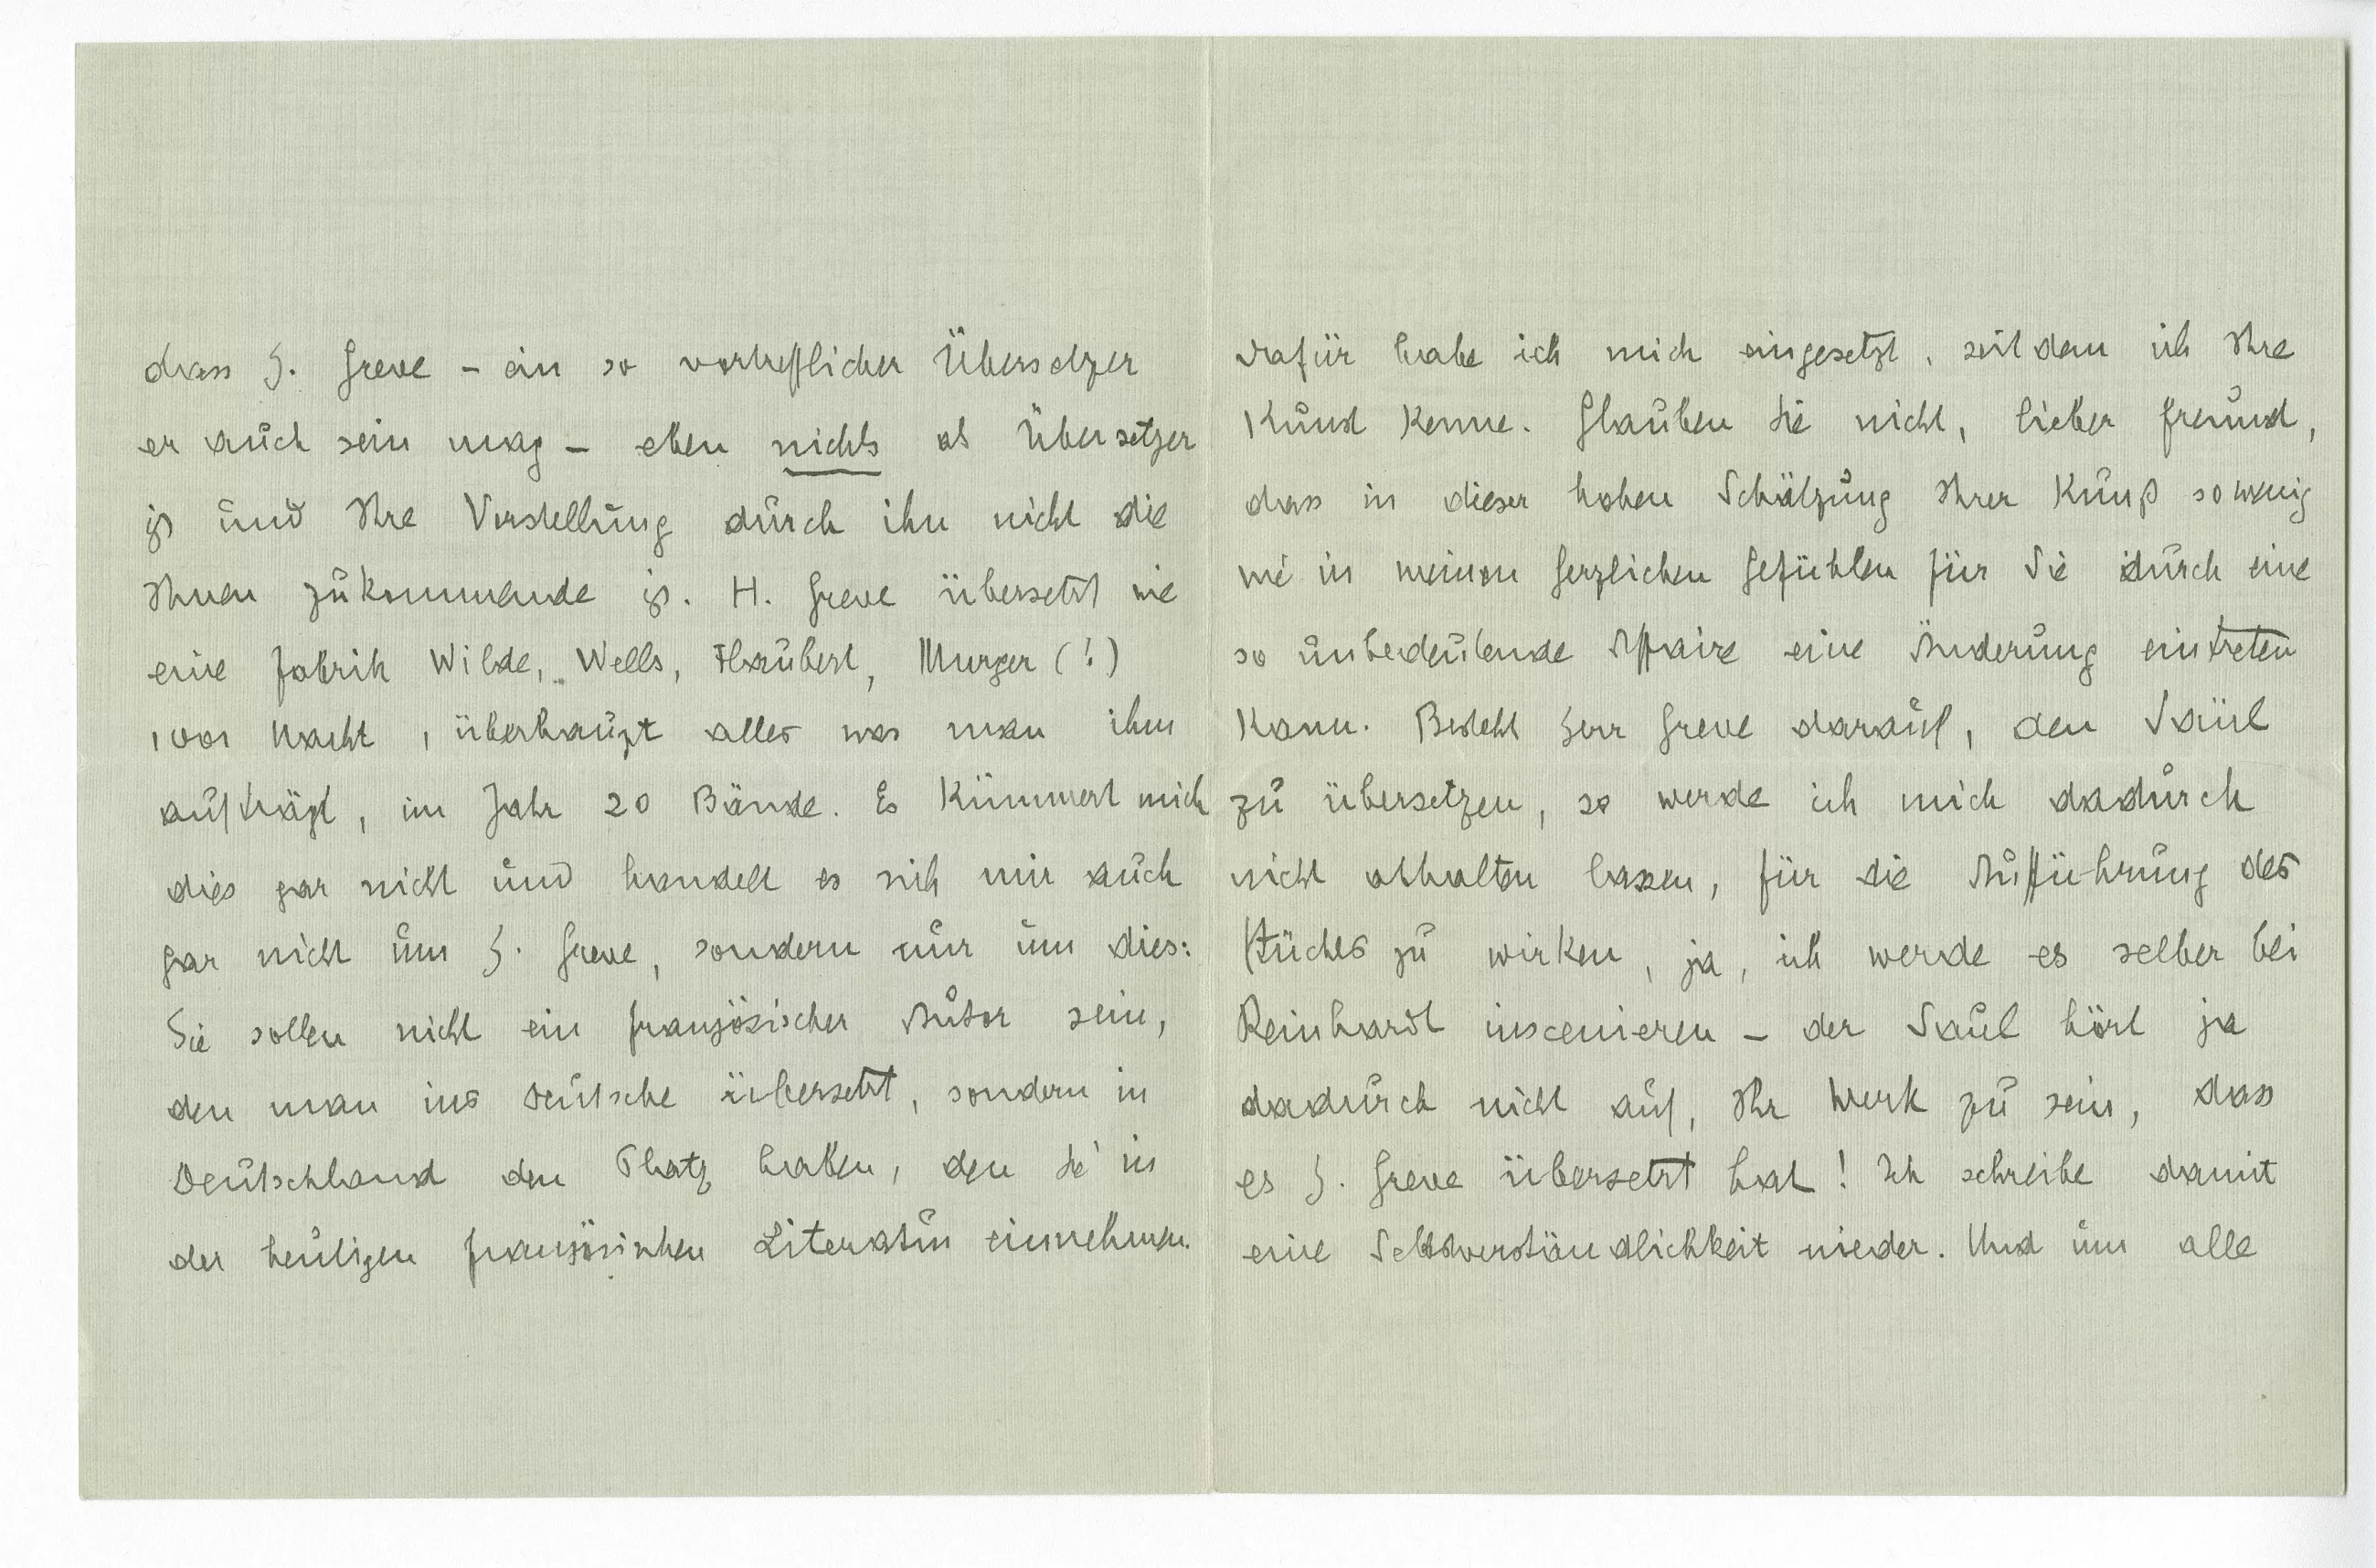 dass H. Greve – ein so vortrefflicher Übersetzer
er auch sein mag – eben nichts als Übersetzer
ist und Ihre Vorstellung durch ihn nicht die
Ihnen zukommende ist. H. Greve übersetzt wie
eine Fabrik Wilde, Wells, Flaubert, Murger (!)
1001 Nacht, überhaupt alles was man ihm
aufträgt, im Jahr 20 Bände. Es kümmert mich
dies gar nicht und handelt es sich mir auch
gar nicht um H. Greve, sondern nur um dies:
Sie sollen nicht ein französischer Autor sein,
den man ins Deutsche übersetzt, sondern in
Deutschland den Platz haben, den Sie in
der heutigen französischen Literatur einnehmen.
Dafür habe ich mich eingesetzt, seit dem ich Ihre
Kunst kenne. Glauben Sie nicht, lieber Freund,
dass in dieser hohen Schätzung Ihrer Kunst so wenig
wie in meinen herzlichen Gefühlen für Sie durch eine
so unbedeutende Affaire eine Änderung eintreten
kann. Besteht Herr Greve darauf, den Saül
zu übersetzen, so werde ich mich dadurch
nicht abhalten lassen, für die Aufführung des
Stückes zu wirken, ja, ich werde es selber bei
Reinhardt inscenieren – der Saul hört ja
dadurch nicht auf, Ihr Werk zu sein, dass
es H. Greve übersetzt hat! Ich schreibe damit
eine Selbstverständlichkeit nieder. Und um alle